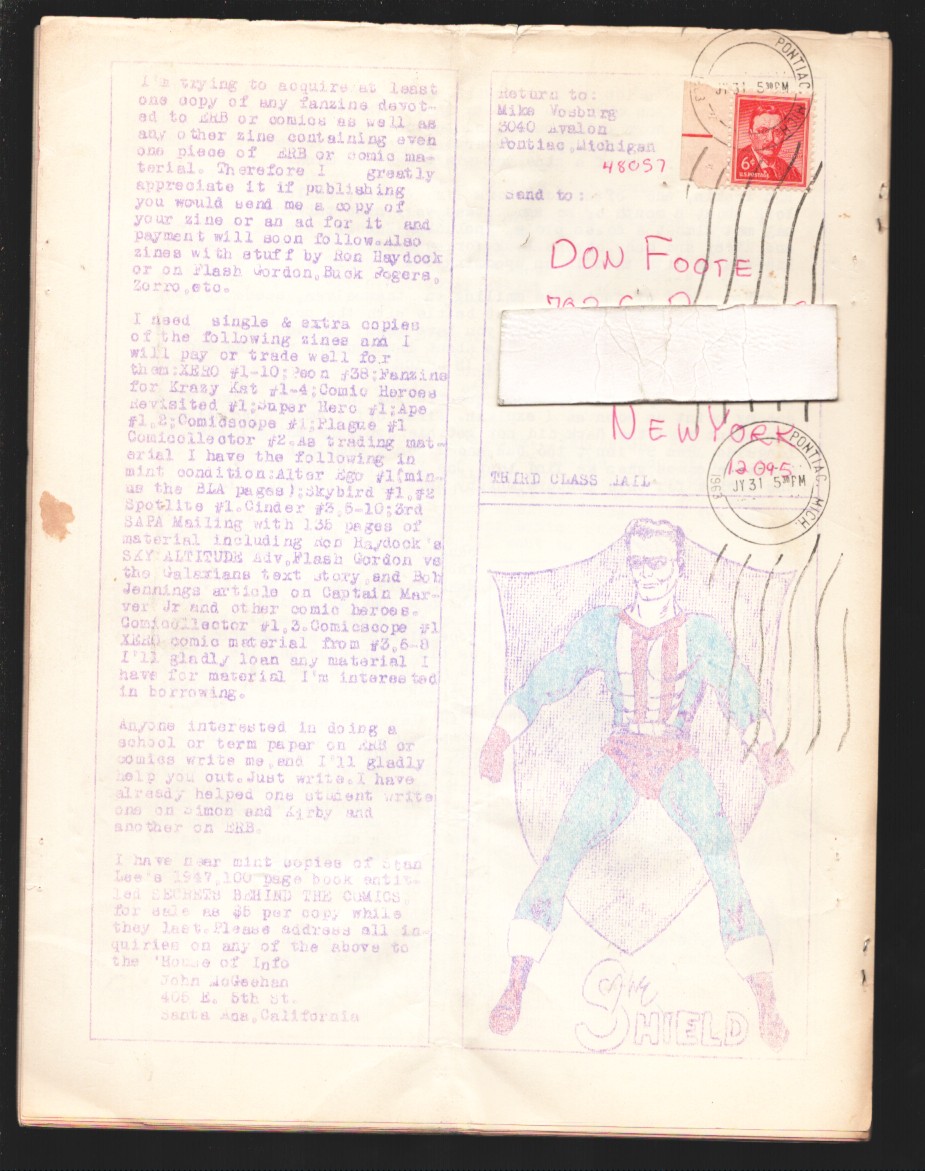 I'm trying to acquire at least
one copy of any fanzine devot-
ed to ERB or comics as well as
any other zine containing even
one piece of ERB or comic ma-
terial. Therefore I greatly
appreciate it if publishing
you would send me a copy of
your zine or an ad for it and
payment will soon follow.Also
zines with stuff by Ron Haydock
or on Flash Gordon,Buck Rogers,
Zorro,etc.
I need single & extra copies
of the following zines and I
will pay or trade well for
them:XERO #1-10; #38;Fanzine
for Krazy Kat #1-4;Comic Heroes
Revisited #1;Super Hero #1;Ape
#1,2;Comicscope #1;Plague #1
Comicollector #2.As trading mat-
erial I have the following in
mint condition:Alter Ego #1(min-
us the BLA pages);Skybird #1,#2
Spotlite #1.Cinder #3,5-10;3rd
SAPA Mailing with 138 pages of
material including Ron Haydock's
SKY ALTITUDE Adv,Flash Gordon vs
the Galaxians text story,and Bob
Jennings article on Captain Mar-
vel Jr and other comic heroes.
Comicollector #1,3.Comicscope #1
XERO comic material from #3,5-8
I'll gladly loan any material I
have for material I'm interested
in borrowing.
Anyone interested in doing a
school or term paper on ERB or
comics write me,and I'll gladly
help you out.Just write.I have
already helped one student write
one on Simon and Kirby and
another on ERB.
I have near mint copies of Stan
Lee's 1947,100 page book entit-
led SECRETS BEHIND THE COMICS
for sale as $5 per copy while
they last.Please address all in-
quiries on any of the above to
the 'House of Info
John McGeehan
405 E. 5th St.
Santa Ana,California
Return to:
Mike Vosburg
3040 Avalon
Pontiac,Michigan
48057
Send to:
DON FOOTE
NEW YORK
12045
THIRD CLASS MAIL
PONTIAC, MICH.
JY 31 5 30 PM
6¢
U.S. POSTAGE
PONTIAC, MICH.
JY 31 5 30 PM
1963
The
SHIELD